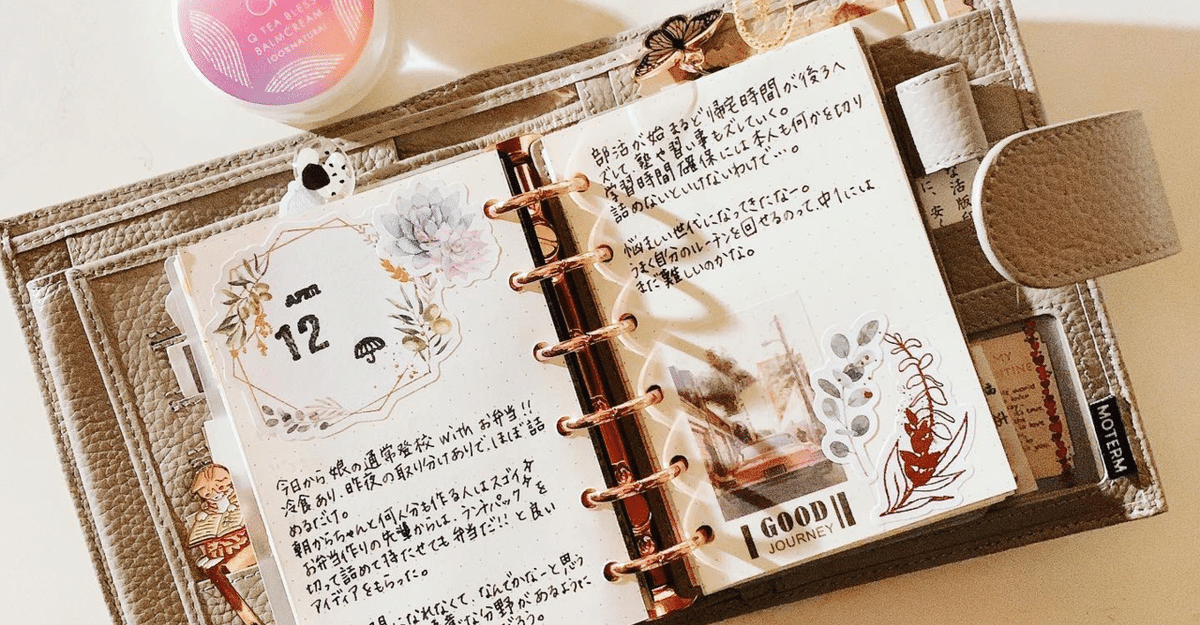 G TEA BLESS
BALMCREAM
100%NATURAL
APRIL
12
今日から娘の通常登校 With お弁当!!
冷食あり、昨夜の取り分けありで、ほぼ詰
めるだけ。
朝からちゃんと何人分も作る人はスゴイ
お弁当作りの先輩からは、ランチパックを
切って詰めて持たせても弁当だ!!と良い
アイディアをもらった。
なれなくて、なんでかなーと思う
な分野があるように
だろう。
部活が始まるど帰宅時間が後ろへ
ズレて、塾や習い事もズレていく。
学習時間確保には本人も何かを切り
詰めないといけないわけで…。
悩ましい世代になってきたなー。
うまく自分のルーテンを回せるのって、中1には
まだ難しいのかな。
GOOD
JOURNEY
な活版印
に、安
MY
MOTERM